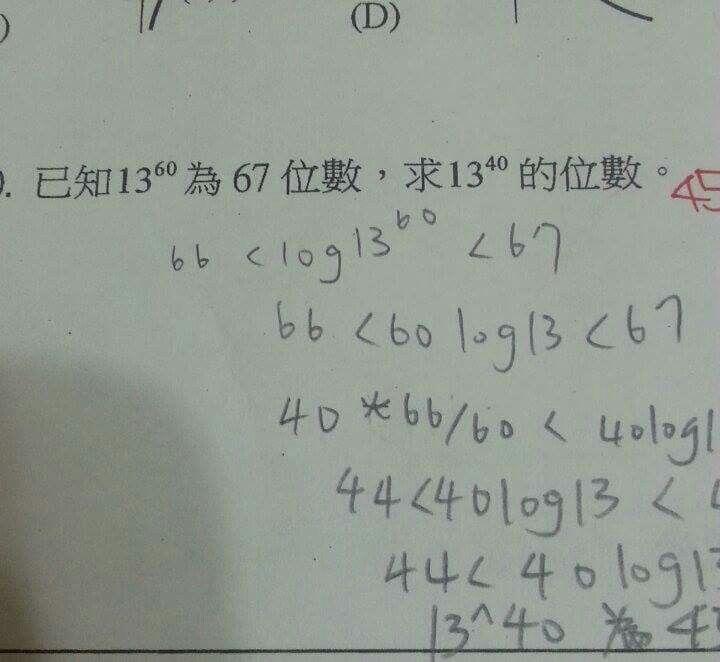 (D)
已知13⁶⁰ 為 67 位數，求13⁴⁰ 的位數。 45
66 < log13⁶⁰ < 67
66 < 60 log13 < 67
40 * 66/60 < 40log1
44 < 40log13 <
44 < 40 log13
13^40 為 4